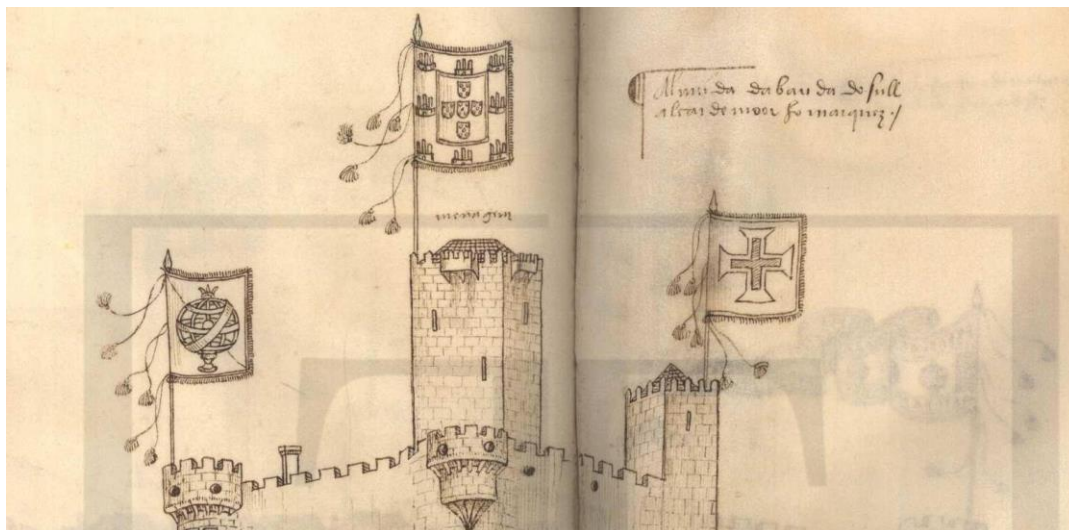 Almeida da banda do sull
alcaide moor ho marquez ./
menagem